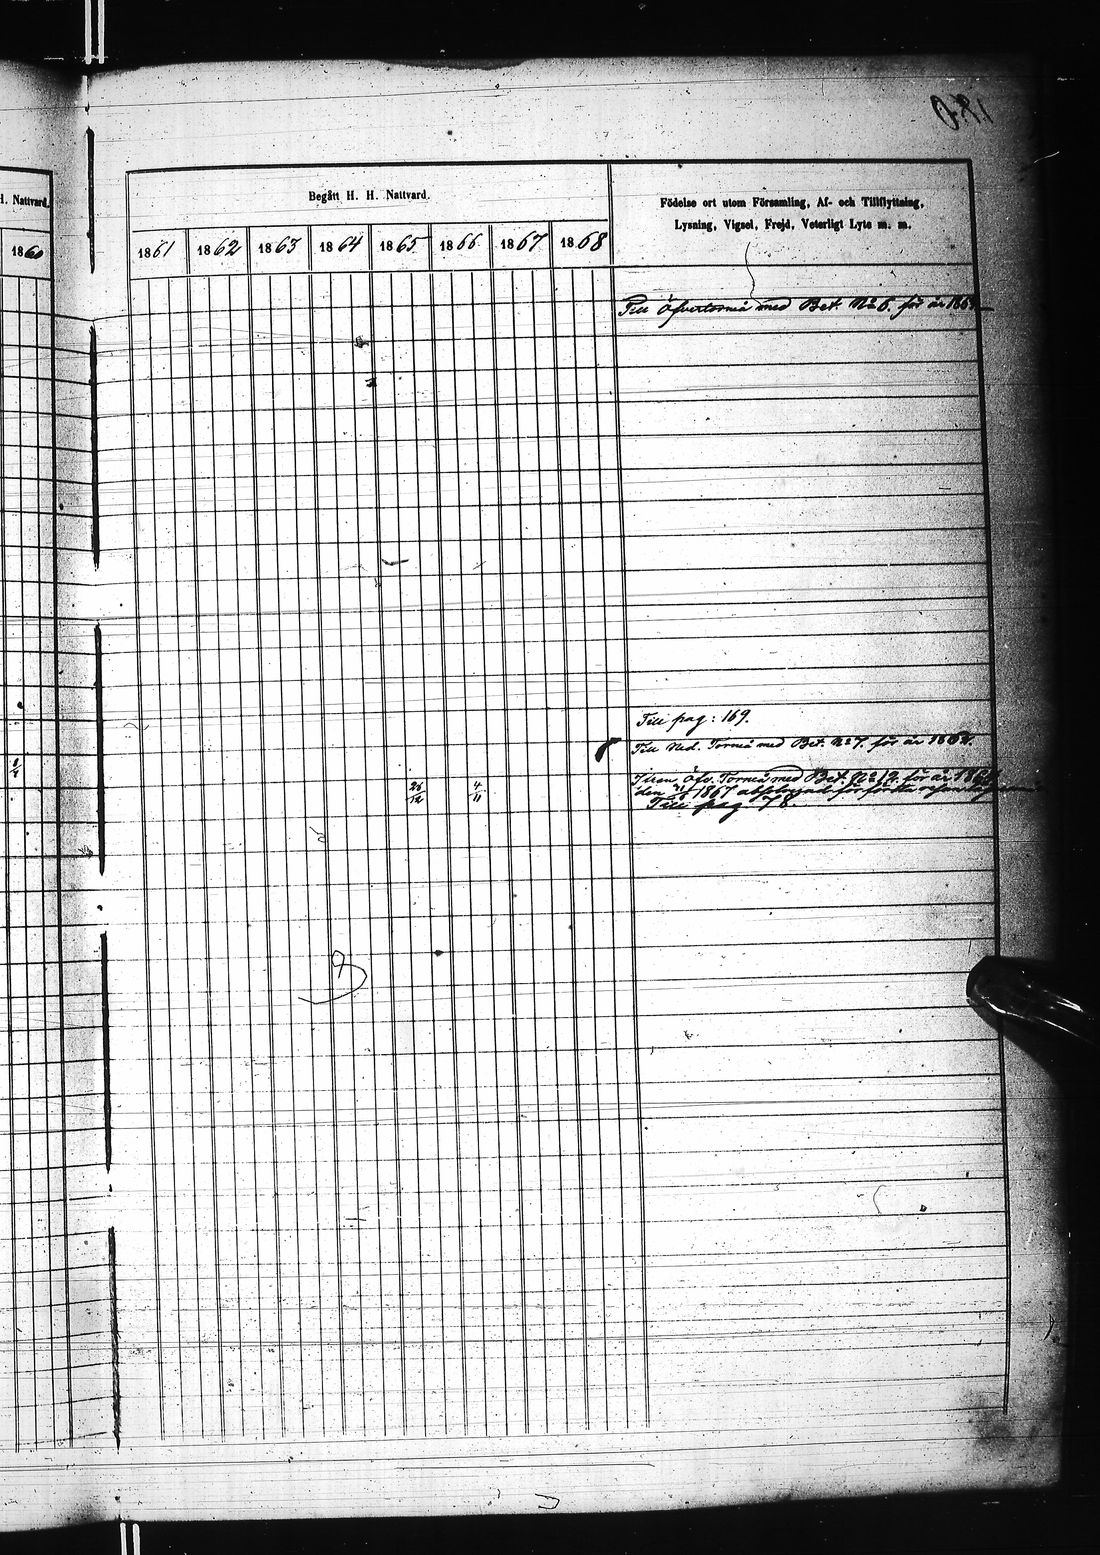 H. Nattvard.
1860
Begått H. H. Nattvard.
Födelse ort utom Församling, Af- och Tillflyttning,
Lysning, Vigsel, Frejd, Veterligt Lyte m. m.
1861 1862 1863 1864 1865 1866 1867 1868
Till Öfvertorneå med Bet. No 6. för år 186
Till pag: 169.
Till Ned. Torneå med Bet. No 7. för år 1862.
Öfv. Torneå med Bet. No 12. för år 186
26/12 4/11
den 1867 för första
Till pag 78